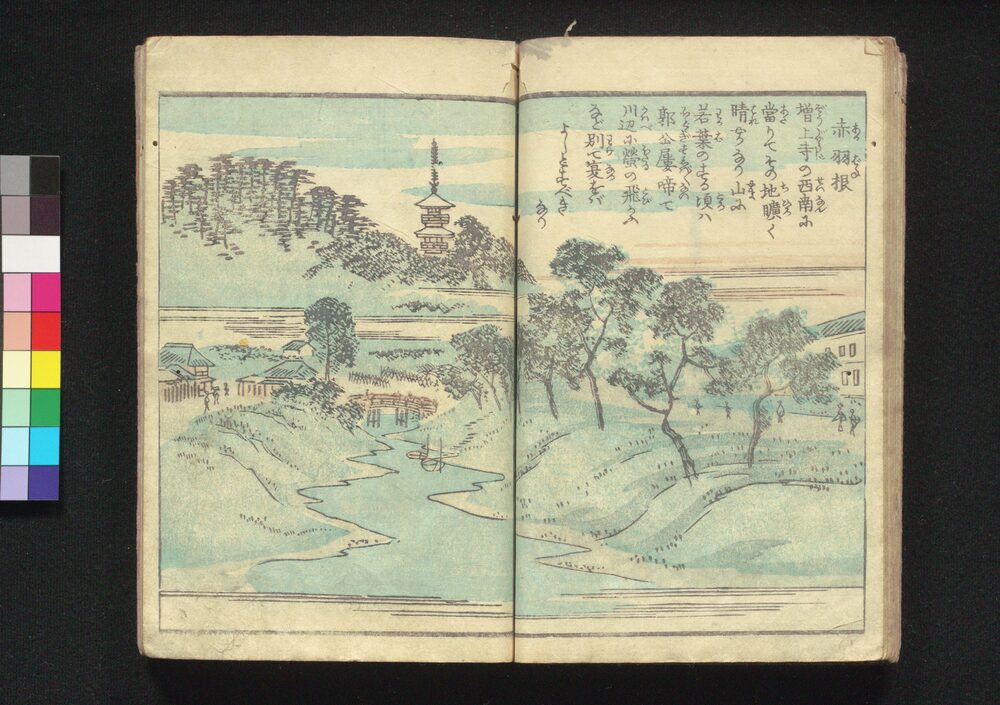 赤羽根
増上寺の西南に
當りてその地曠く
晴やかなり山に
若葉のすゑ頃ハ
郭公屢啼て
川辺に螢の飛かふ
など別て夏をバ
よしとすべき
なり